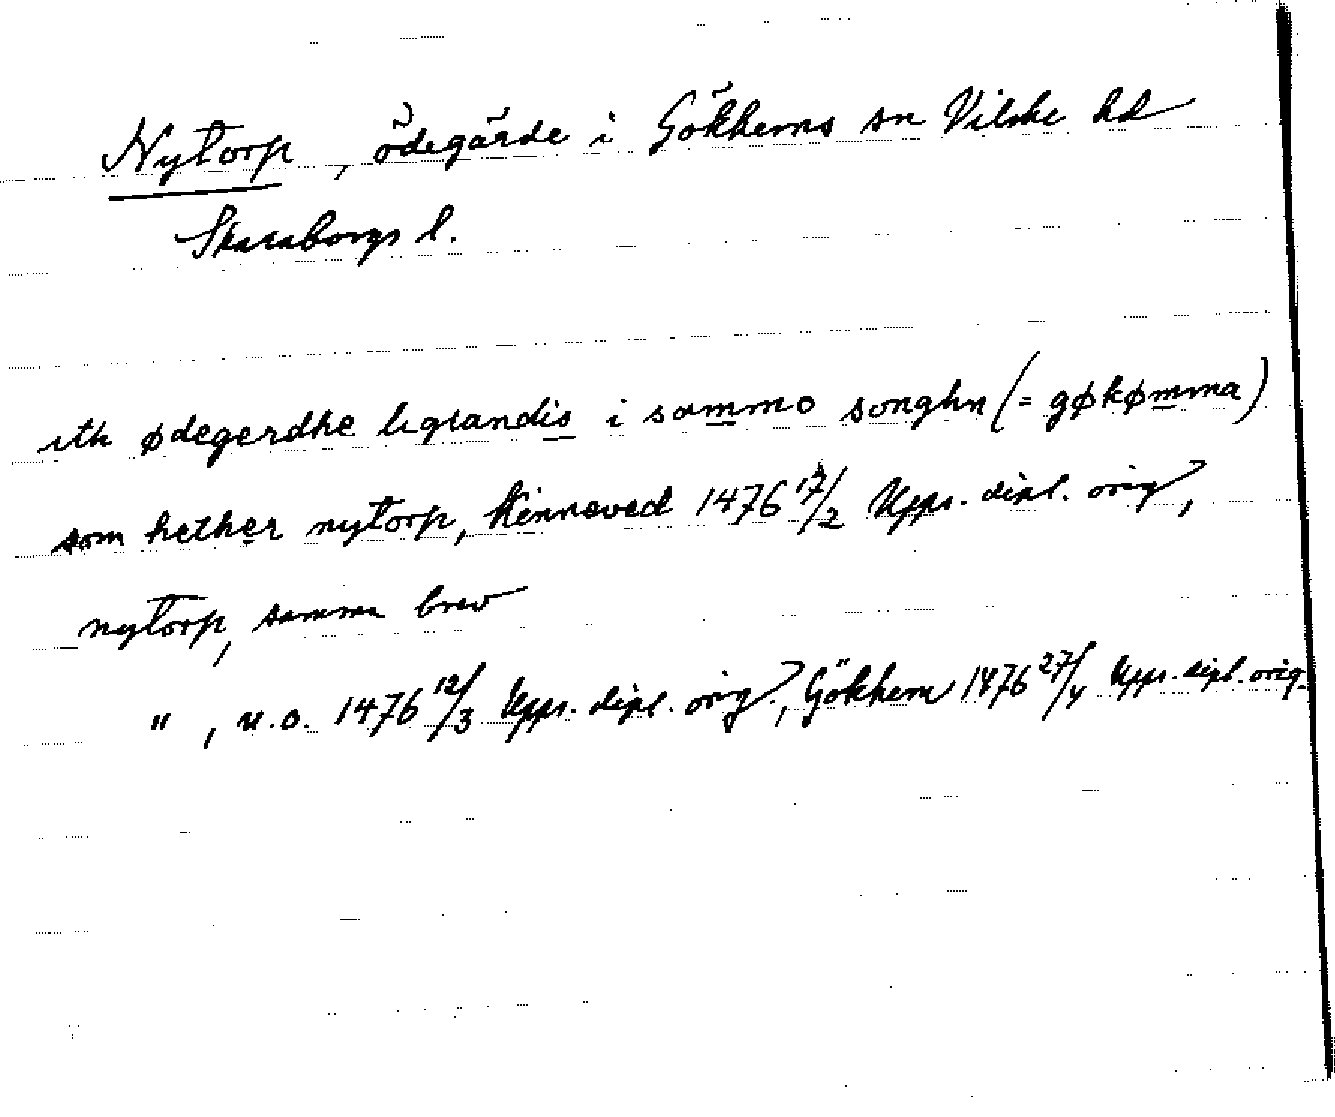 Nytorp, ödegärde i Gökhems sn Vilske hd
Skaraborgs l.
itth ødegerdhe ligiandis i sammo songhn (= gøkømma)
som hether nytorp, Kinneved 1476 17/2 Upps. dipl. orig,
nytorp, samma brev
" , u.o. 1476 12/3 Upps. dipl. orig, Gökhem 1476 27/4 Upps. dipl. orig.